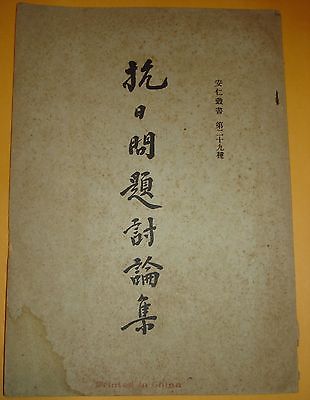 安仁叢書 第二十九種
抗日問題討論集
Printed in China